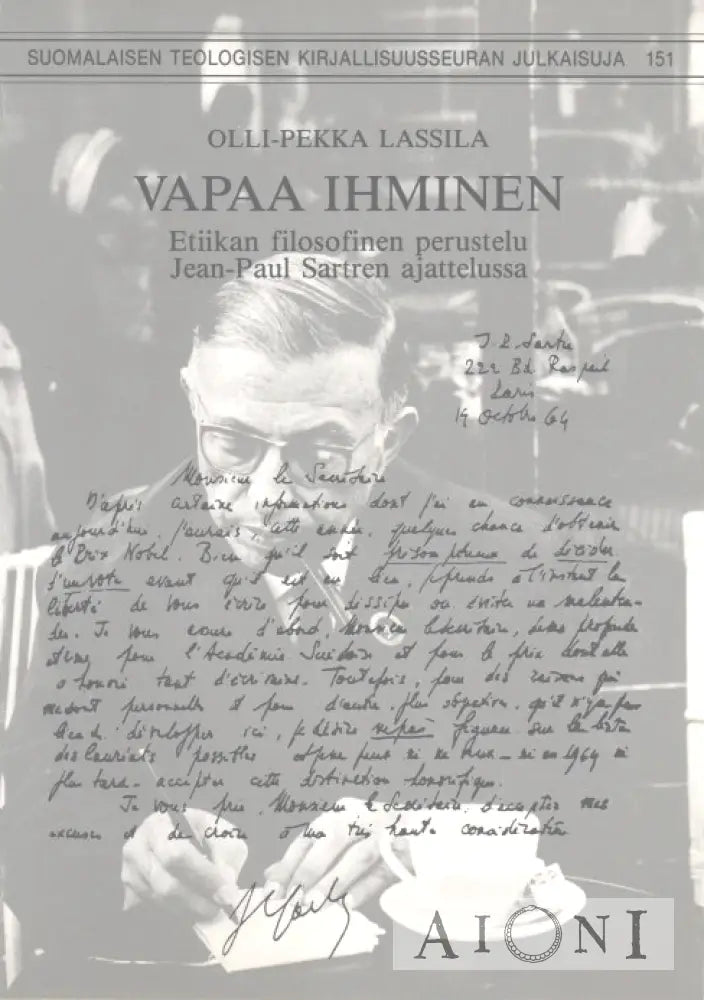 SUOMALAISEN TEOLOGISEN KIRJALLISUUSSEURAN JULKAISUJA 151
OLLI-PEKKA LASSILA
VAPAA IHMINEN
Etiikan filosofinen perustelu
Jean-Paul Sartren ajattelussa
J. P. Sartre
222 Bd Raspail
Paris
19 octobre 64
Monsieur le Secrétaire
D'après certaines informations dont j'ai eu connaissance
aujourd'hui, j'aurais, cette année, quelques chances d'obtenir
le Prix Nobel. Bien qu'il soit présomptueux de décider
d'un vote avant qu'il ait eu lieu, je prends à l'instant la
liberté de vous écrire pour dissiper ou éviter un malenten-
du. Je vous assure d'abord, Monsieur le Secrétaire, de ma profonde
estime pour l'Académie Suédoise et pour le prix dont elle
a honoré tant d'écrivains. Toutefois, pour des raisons qui
me sont personnelles et pour d'autres plus objectives, qu'il n'y a pas
lieu de développer ici, je désire ne pas figurer sur la liste
des lauréats possibles et je ne peux ni ne veux - ni en 1964 ni
plus tard - accepter cette distinction honorifique.
Je vous prie, Monsieur le Secrétaire, d'accepter mes
excuses et de croire à ma très haute considération
AIONI